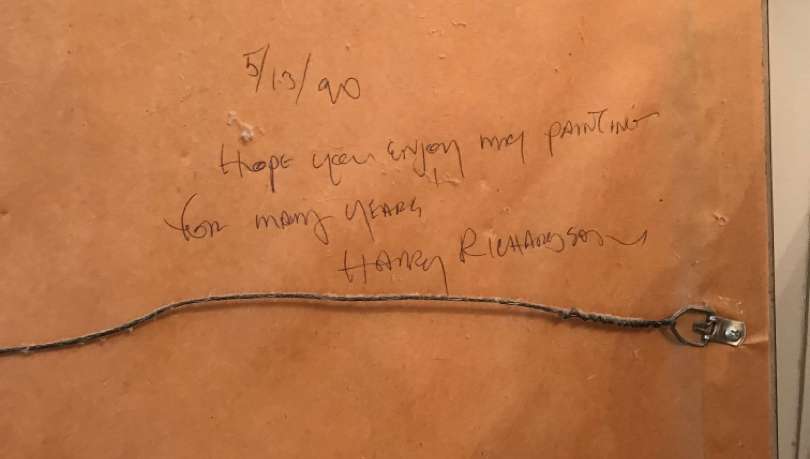 5/13/90
Hope you enjoy my painting
for many years
Harry Richardson